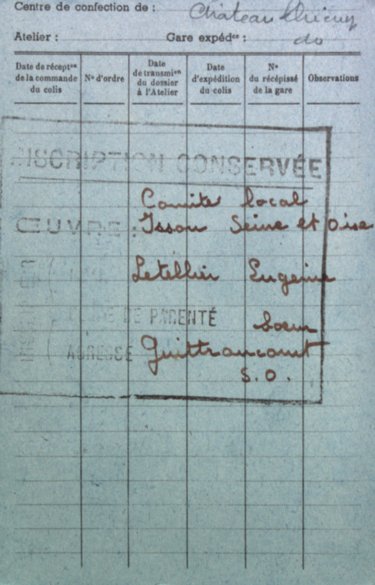 Centre de confection de : Château Thierry
Atelier : Gare expéd^ce : do
Date de récept^on de la commande du colis
N° d'ordre
Date de transmi^on du dossier à l'Atelier
Date d'expédition du colis
N° du récépissé de la gare
Observations
INSCRIPTION CONSERVÉE
Comité local
ŒUVRE : Issou Seine et Oise
Letellier Eugenie
DE PARENTÉ Soeur
ADRESSE Guittrancourt
S.O.